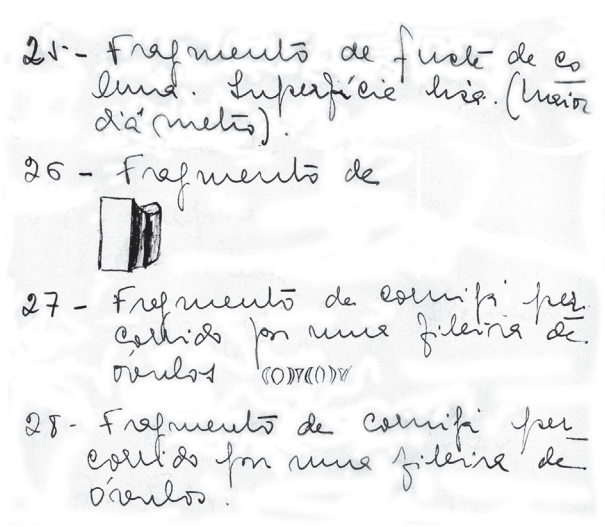 25- Fragmento de fuste de co
luna. Superfície lisa. (maior
diâmetro).
26 - Fragmento de
27 - Fragmento de cornija per
corrido por uma fileira de
óvulos
28 - Fragmento de cornija per_
corrido por uma fileira de
óvulos.